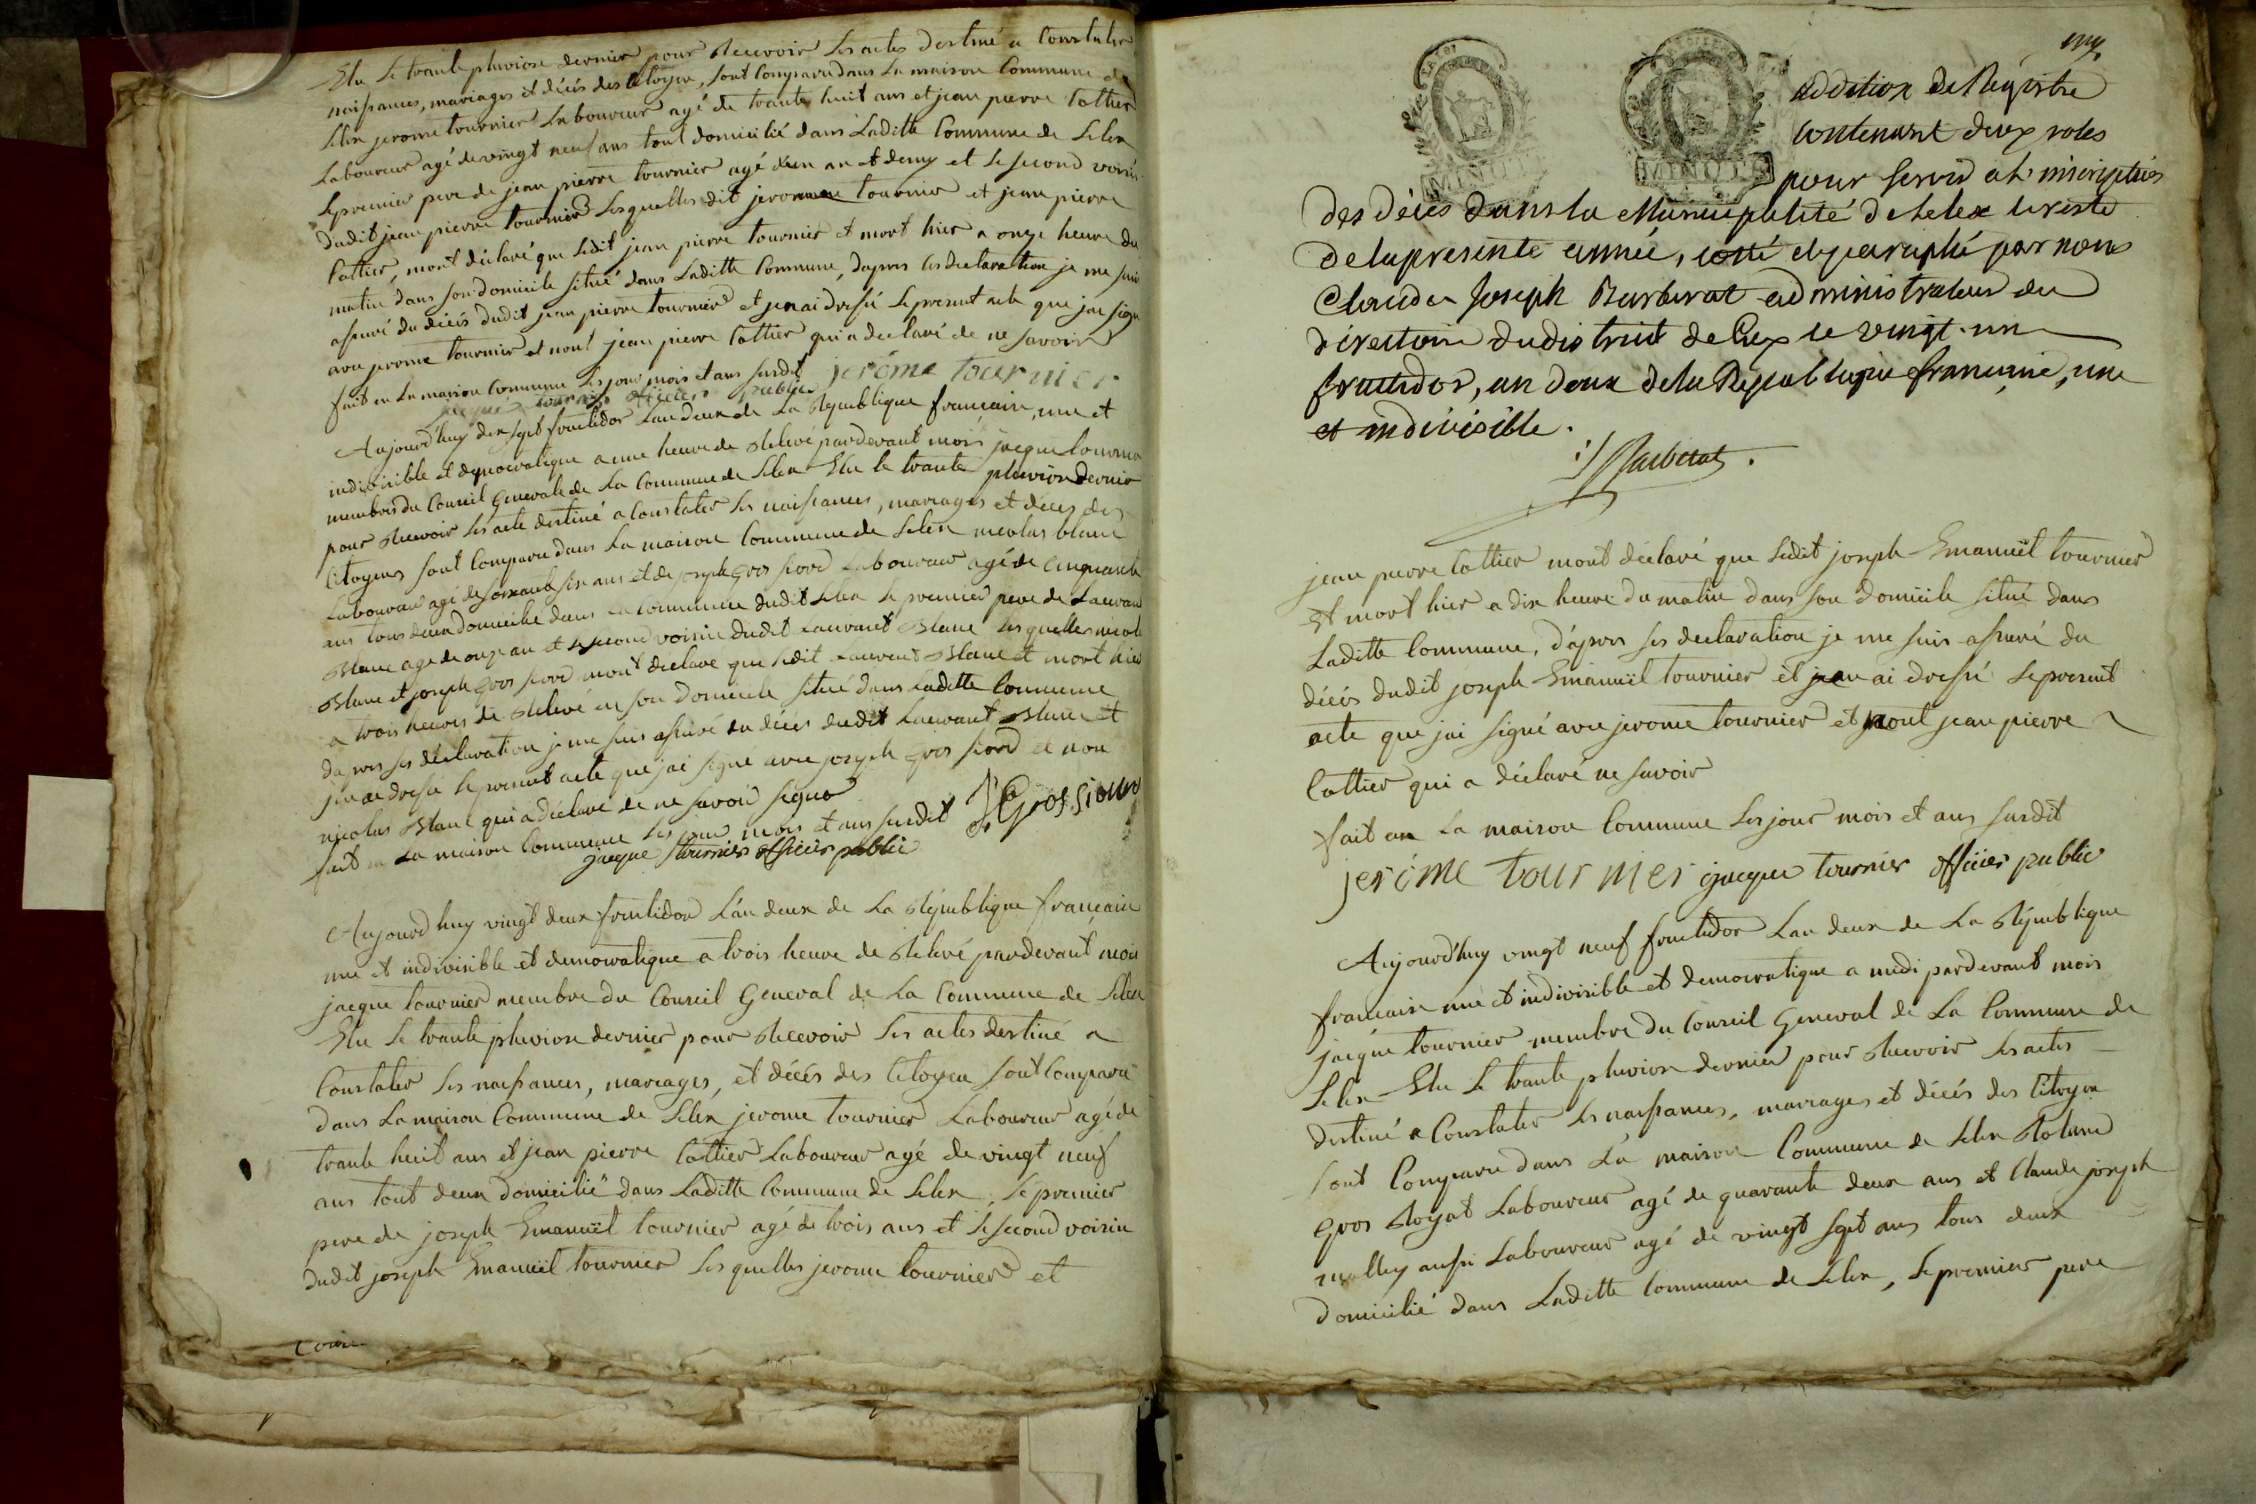 Elu le trante pluviose dernier pour Recevoir les actes destiné a Constater
naissances, mariages et décés des Citoyen, sont Comparu dans La maison Commune de
Lelex jerome tournier Laboureur agé de trante huit ans et jean pierre Cattier
Laboureur agé de vingt neuf ans tout domicilié dans Laditte Commune de Lelex
Le premier pere de jean pierre tournier agé d'un an et demy et le second voisin
dudit jean pierre tournier Les quelles dit jerome tournier et jean pierre
Cattier, mont déclaré que Ledit jean pierre tournier et mort hier a onze heure du
matin dans son domicile situé dans Laditte Commune, dapres les declaration je me suis
assuré du décés dudit jean pierre tournier et jen ai dressé Le present acte que jai signé
avec jerome tournier et nont jean pierre Cattier qui a declaré de ne savoir
fait en La maison Commune Les jour mois et ans susdit jeróme tournier
jacque tournier officier public
Aujourd'huy dix sept fructidor L'an deux de La République francaise, une et
indivisible et democratique a une heure de Relevé pardevant mois jacque tournier
membre du Conseil Generale de La Commune de Lelex Elu le trante pluviose dernier
pour Recevoir les acte destiné a Constater Les naissances, mariages et décés des
Citoyens sont Comparu dans La maison Commune de Lelex nicolas blanc
Laboureur agé de soixante six ans et de joseph gros fiord Laboureur agé de Cinquante
ans tous deux domicilié dans La Commune dudit Lelex Le premier pere de Laurant
Blanc age de onze an et le second voisin dudit Laurant Blanc Les quelles nicolas
Blanc et joseph gros fiord mont declaré que Ledit Laurent Blanc et mort hier
a trois heures de Relevé en son Domicile situé dans Laditte Commune
dapres ses déclaration je me suis assuré du décés dudit Laurant Blanc et
jen ai dressé le present acte que jai signé avec joseph gros fiord et non
nicolas Blanc qui a déclaré de ne savoir signer
fait en La maison Commune Les jour mois et ans susdit
jacque tournier officier public
Aujourd'huy vingt deux fructidor L'an deux de La République francaise
une et indivisible et democratique a trois heure de Relevé pardevant mois
jacque tournier membre du Conseil General de La Commune de Lelex
Elu Le trante pluviose dernier pour Recevoir Les actes destiné a
Constater Les naissances, mariages, et décés des Citoyen sont Comparu
dans La maison Commune de Lelex jerome tournier Laboureur agé de
trante huit ans et jean pierre Cattier Laboureur agé de vingt neuf
ans tout deux domicilié dans Laditte Commune de Lelex, Le premier
pere de joseph Emanuël tournier agé de trois ans et Le second voisin
dudit joseph Emanuël tournier Les quelles jerome tournier et
addition de Régistre
contenant deux roles
pour servir a l'inscription
des décés dans la Municipalité de Lelex le reste
de la presente année, cotté et paraphé par nous
Claude Joseph Barberat administrateur du
directoire du district de Gex le vingt-un
fructidor, an deux de la République francaise, une
et indivisible.
Barberat.
MINUTE
MINUTE
jean pierre Cattier mont déclaré que Ledit joseph Emanuël tournier
et mort hier a dix heure du matin dans son domicile situé dans
Laditte Commune, d'apres ses declaration je me suis assuré du
décés dudit joseph Emanuël tournier et jen ai dressé Le present
acte que jai signé avec jerome tournier et nont jean pierre
Cattier qui a déclaré ne savoir
fait en La maison Commune Les jour mois et ans susdit
jeróme tournier jacque tournier officier public
Aujourd'huy vingt neuf fructidor L'an deux de La République
francaise une et indivisible et democratique a midi pardevant mois
jacque tournier membre du Conseil General de La Commune de
Lelex Elu Le trante pluviose dernier pour Recevoir Les actes
destiné a Constater Les naissances, mariages et décés des Citoyen
sont Comparu dans La maison Commune de Lelex Roland
gros Royat Laboureur agé de quarante deux ans et Claude joseph
molley aussi Laboureur agé de vingt sept ans tous deux
domicilié dans Laditte Commune de Lelex, Le premier pere